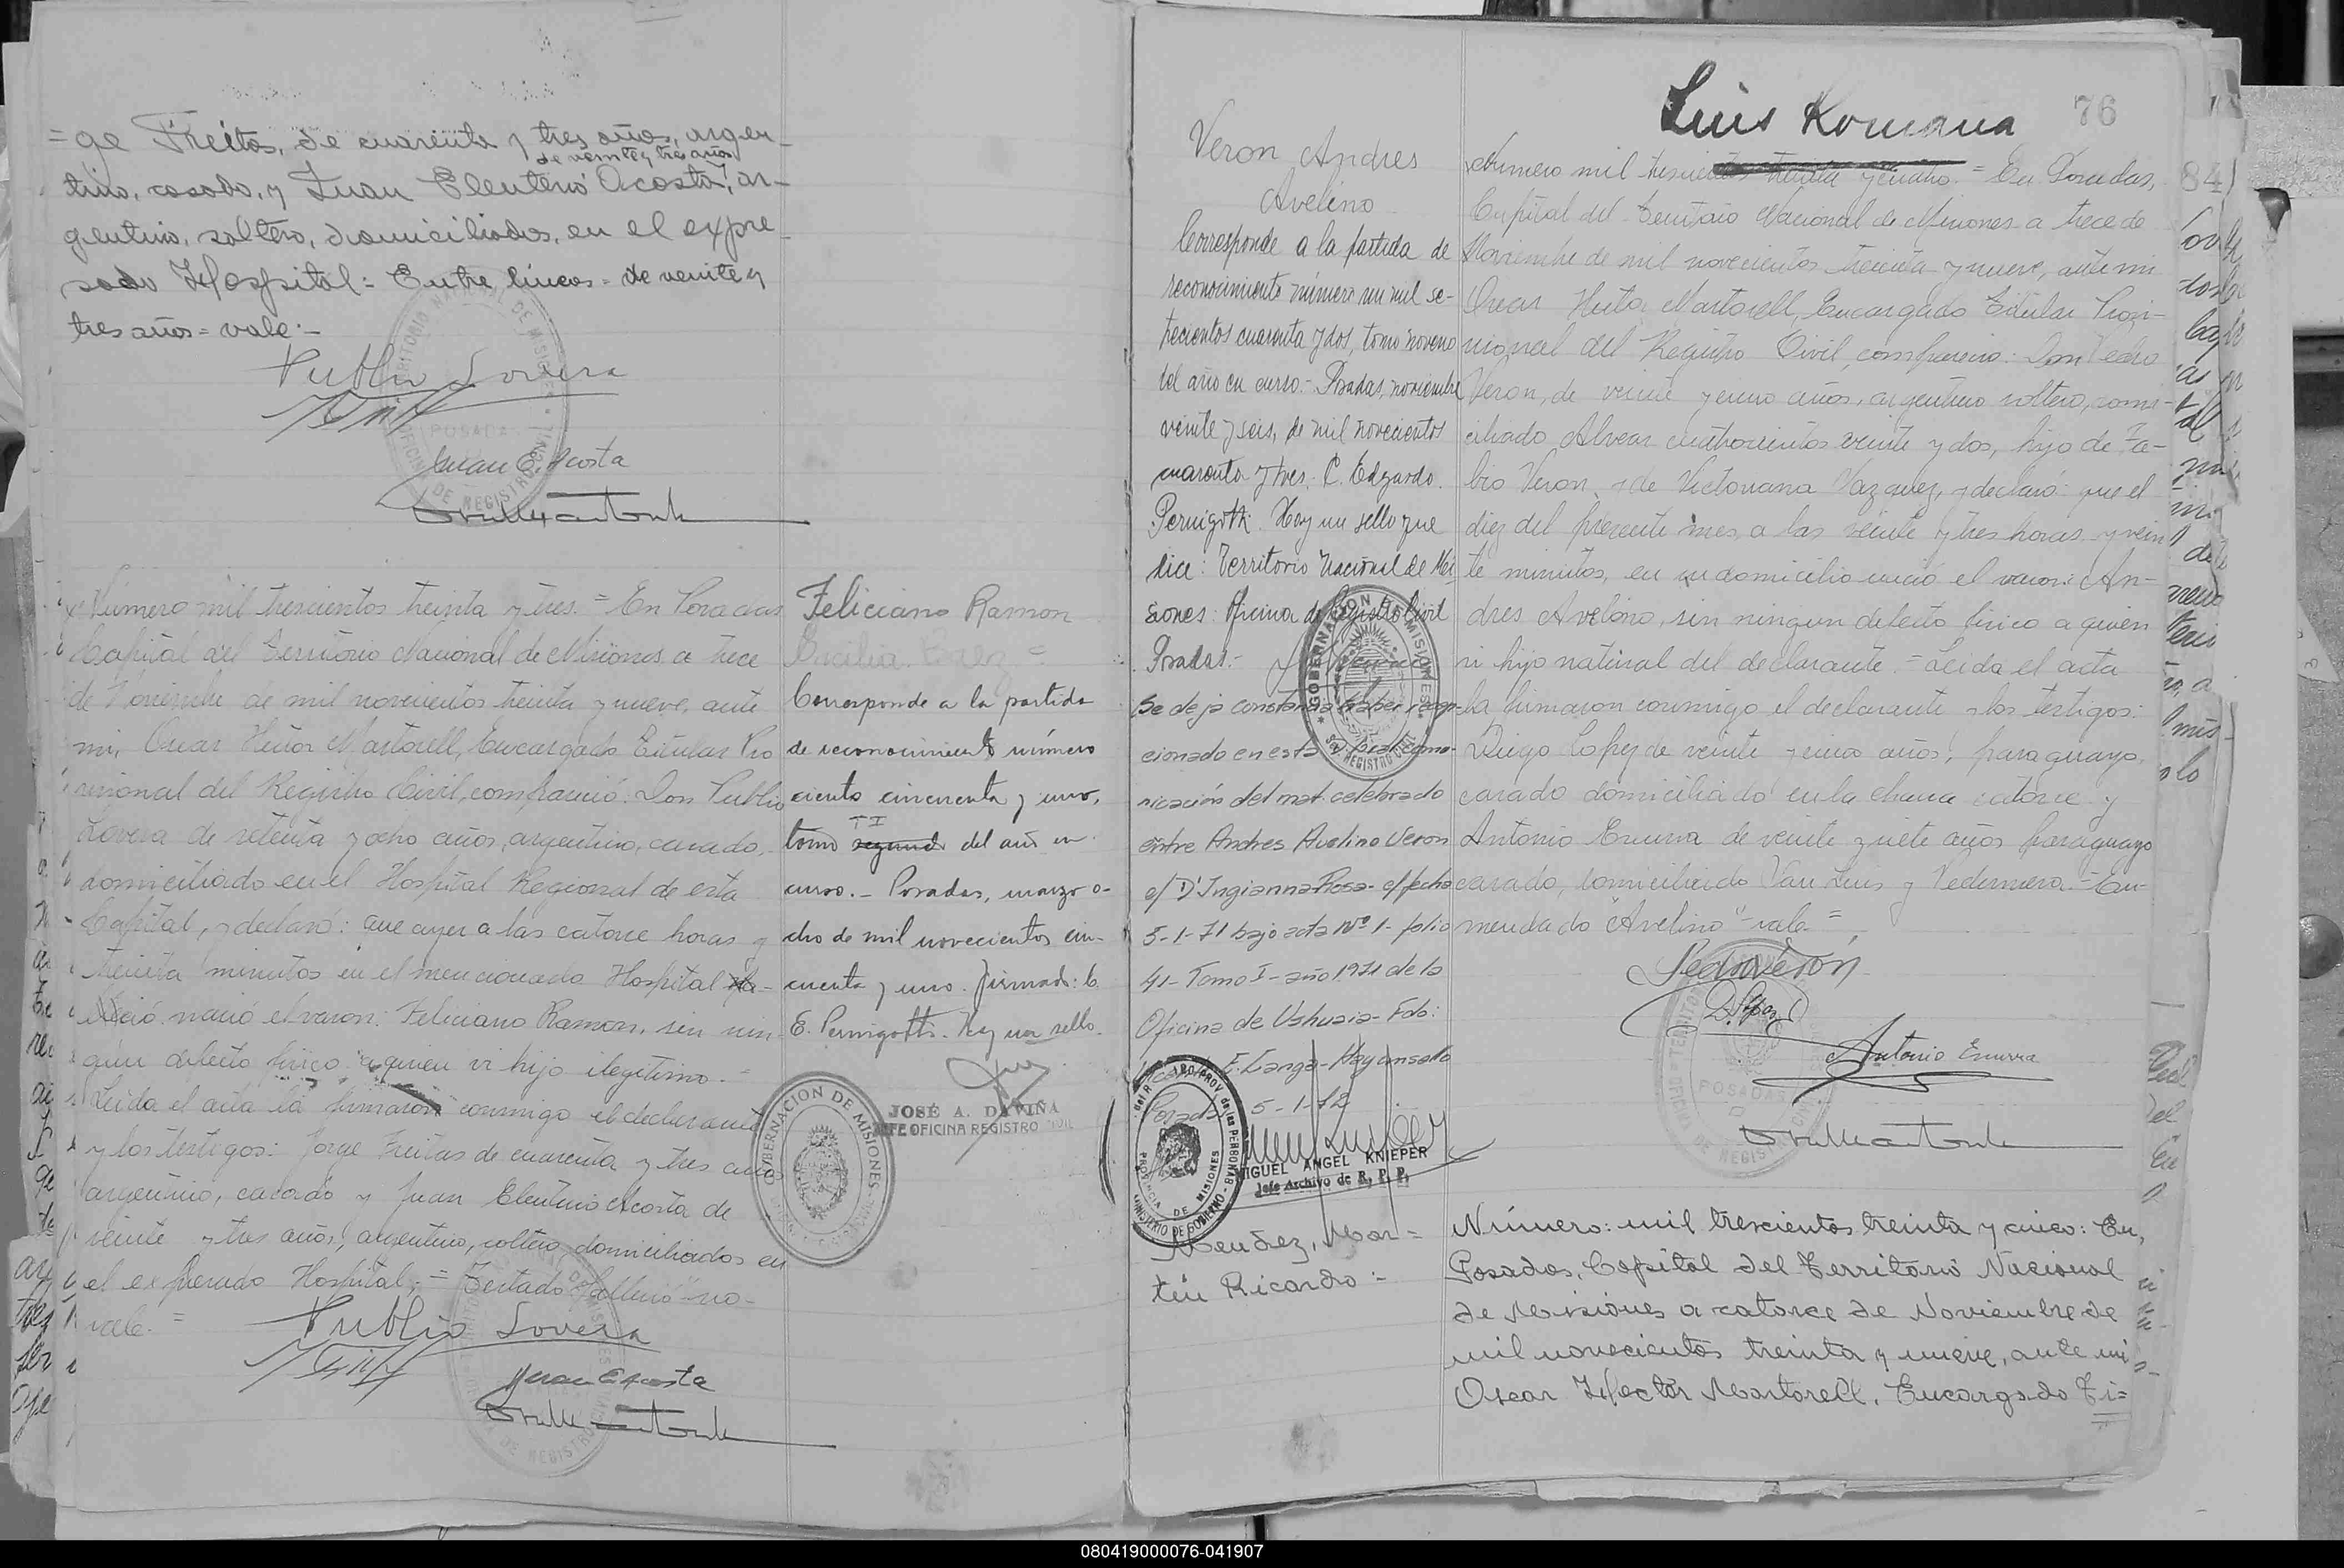 =ge Freitas, de cuarenta y tres años, argen-
de veinte y tres años
tino, casado, y Juan Eleuterio Acosta, ar-
gentino, soltero, domiciliados, en el expre
sado Hospital: Entre líneas = de veinte y
tres años = vale:-
Publio Lovera
Juan E. Acosta
TERRITORIO NACIONAL DE MISIONES
POSADAS
OFICINA DE REGISTRO CIVIL
Número mil trescientos treinta y tres. = En Posadas
Capital del Territorio Nacional de Misiones a trece
de Noviembre de mil novecientos treinta y nueve, ante
mi, Oscar Héctor Martorell, Encargado Titular Pro
visional del Registro Civil, compareció: Don Publio
Lovera de setenta y ocho años, argentino, casado,
domiciliado en el Hospital Regional de esta
Capital, y declaró: que ayer a las catorce horas y
treinta minutos en el mencionado Hospital fa-
lleció nació el varon: Feliciano Ramon, sin nin-
gún defecto físico a quien vi hijo ilegítimo. =
Leida el acta la firmaron conmigo el declarante
y los testigos: Jorge Freitas de cuarenta y tres años
argentino, casado y Juan Eleuterio Acosta de
veinte y tres años, argentino, soltero, domiciliados en
el expresado Hospital; = Testado "falleció" no-
vale. =
Publio Lovera
Juan E Acosta
Feliciano Ramon
Corresponde a la partida
de reconocimiento número
ciento cincuenta y uno,
TI
tomo segundo del año en
curso.- Posadas, marzo o-
cho de mil novecientos cin-
cuenta y uno. firmado: C.
E. Pernigotti. Hay un sello.
JOSÉ A. DAVIÑA
JEFE OFICINA REGISTRO CIVIL
GOBERNACION DE MISIONES
Luis Romana
76
84
Veron Andres
Avelino
Corresponde a la partida de
reconocimiento número un mil se-
tecientos cuarenta y dos, tomo noveno
del año en curso.- Posadas, noviembre
veinte y seis, de mil novecientos
cuarenta y tres. C. Edgardo
Pernigotti. Hay un sello que
dice: Territorio Nacional de Mi-
siones: Oficina de Registro Civil
Posadas.-
GOBERNACION DE MISIONES
Se deja constancia haber recep-
cionado en esta comu-
nicación del mat. celebrado
entre Andres Avelino Veron
c/ D'Ingianna Rosa- c/fecha
5-1-71 bajo acta Nº 1- folio
41- Tomo I- año 1971 de la
Oficina de Ushuaia- Fdo:
E. Langa- Hay un sello
Posadas 5-1-72
MIGUEL ANGEL KNIEPER
Jefe Archivo de R. P. P.
PROVINCIA DE MISIONES
MINISTERIO DE GOBIERNO
Número mil trescientos treinta y cuatro. = En Posadas,
Capital del Territorio Nacional de Misiones a trece de
Noviembre de mil novecientos treinta y nueve, ante mi
Oscar Hector Martorell, Encargado Titular Provi-
sional del Registro Civil, compareció: Don Pedro
Veron, de veinte y cinco años, argentino soltero, domi-
ciliado Alvear cuatrocientos veinte y dos, hijo de Fa-
bio Veron, y de Victoriana Vazquez, y declaró: que el
diez del presente mes, a las veinte y tres horas y vein
te minutos, en su domicilio nació el varon: An-
dres Avelino, sin ningun defecto fisico a quien
vi hijo natural del declarante. = Leida el acta
la firmaron conmigo el declarante y los testigos:
Diego Lopez de veinte y cinco años, paraguayo,
casado domiciliado en la chacra catorce y
Antonio Encurra de veinte y siete años paraguayo
casado, domiciliado San Luis y Pedernera. = En-
mendado "Avelino" - vale =
Pedro Verón
D. Lopez
Antonio Encurra
POSADAS
Mendez, Mar=
tín Ricardo:-
Número: mil trescientos treinta y cinco: En,
Posadas, Capital del Territorio Nacional
de Misiones a catorce de Noviembre de
mil novecientos treinta y nueve, ante mi
Oscar Héctor Martorell, Encargado Ti=
080419000076-041907